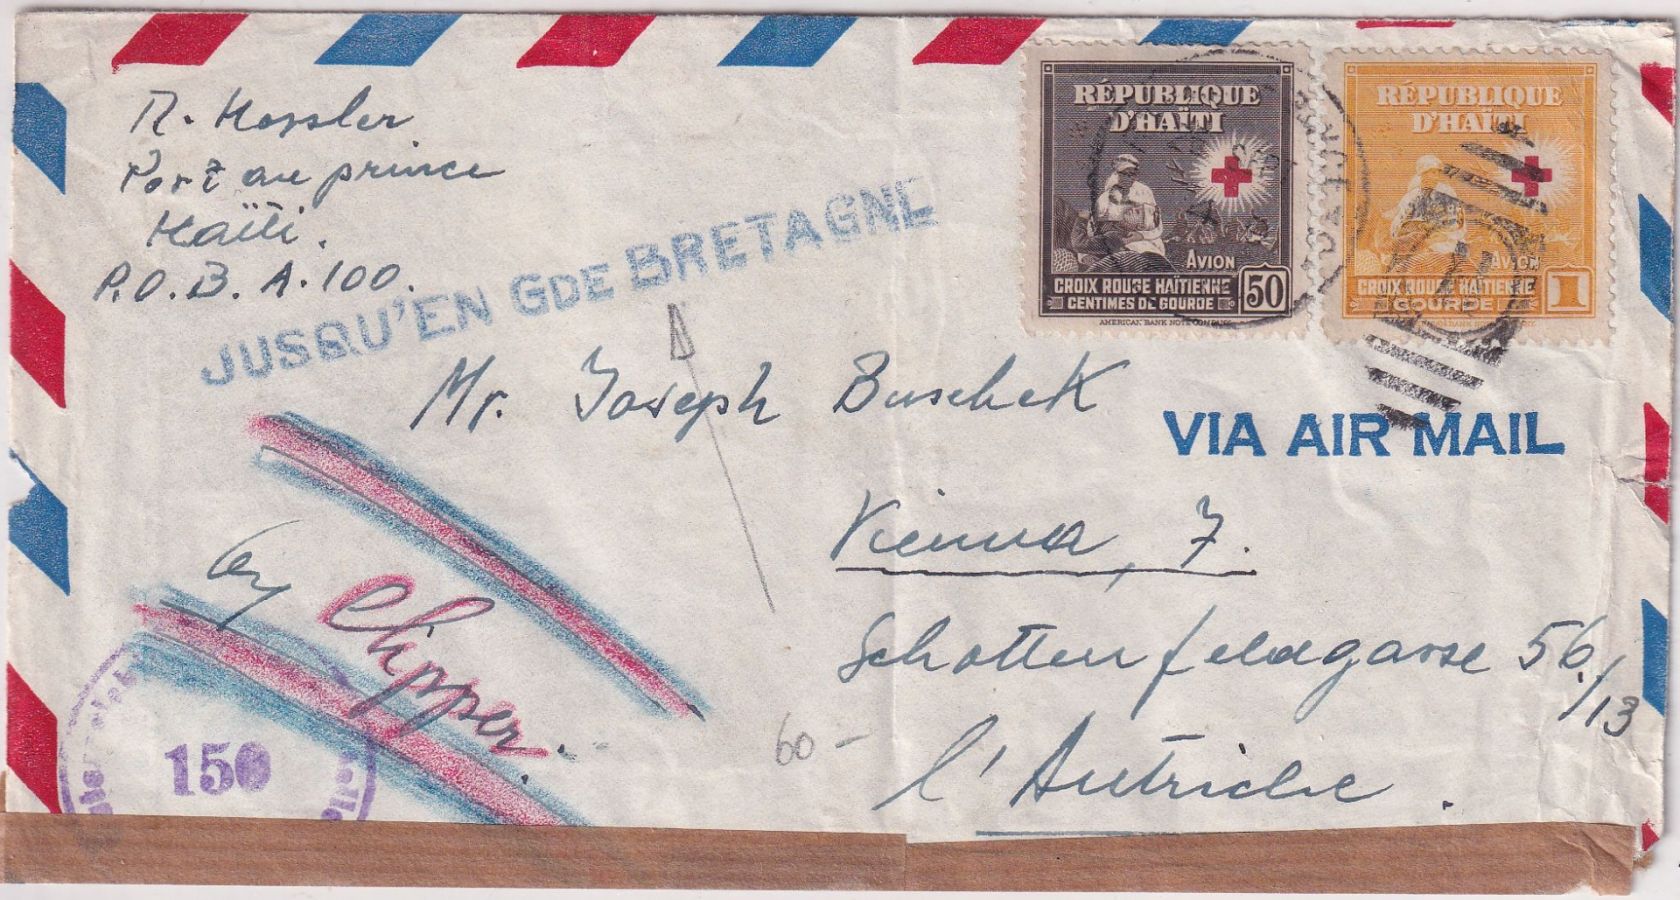 R. Hossler
Port au prince
Haïti.
P.O.B. A.100.
JUSQU'EN GDE BRETAGNE
RÉPUBLIQUE
D'HAÏTI
AVION
CROIX ROUGE HAÏTIENNE
CENTIMES DE GOURDE
50
AMERICAN BANK NOTE COMPANY
RÉPUBLIQUE
D'HAÏTI
AVION
CROIX ROUGE HAÏTIENNE
GOURDE
1
VIA AIR MAIL
Mr. Joseph Buschek
Vienna, 7.
Schottenfeldgasse 56/13
l'Autriche.
by Clipper.
60 -
150